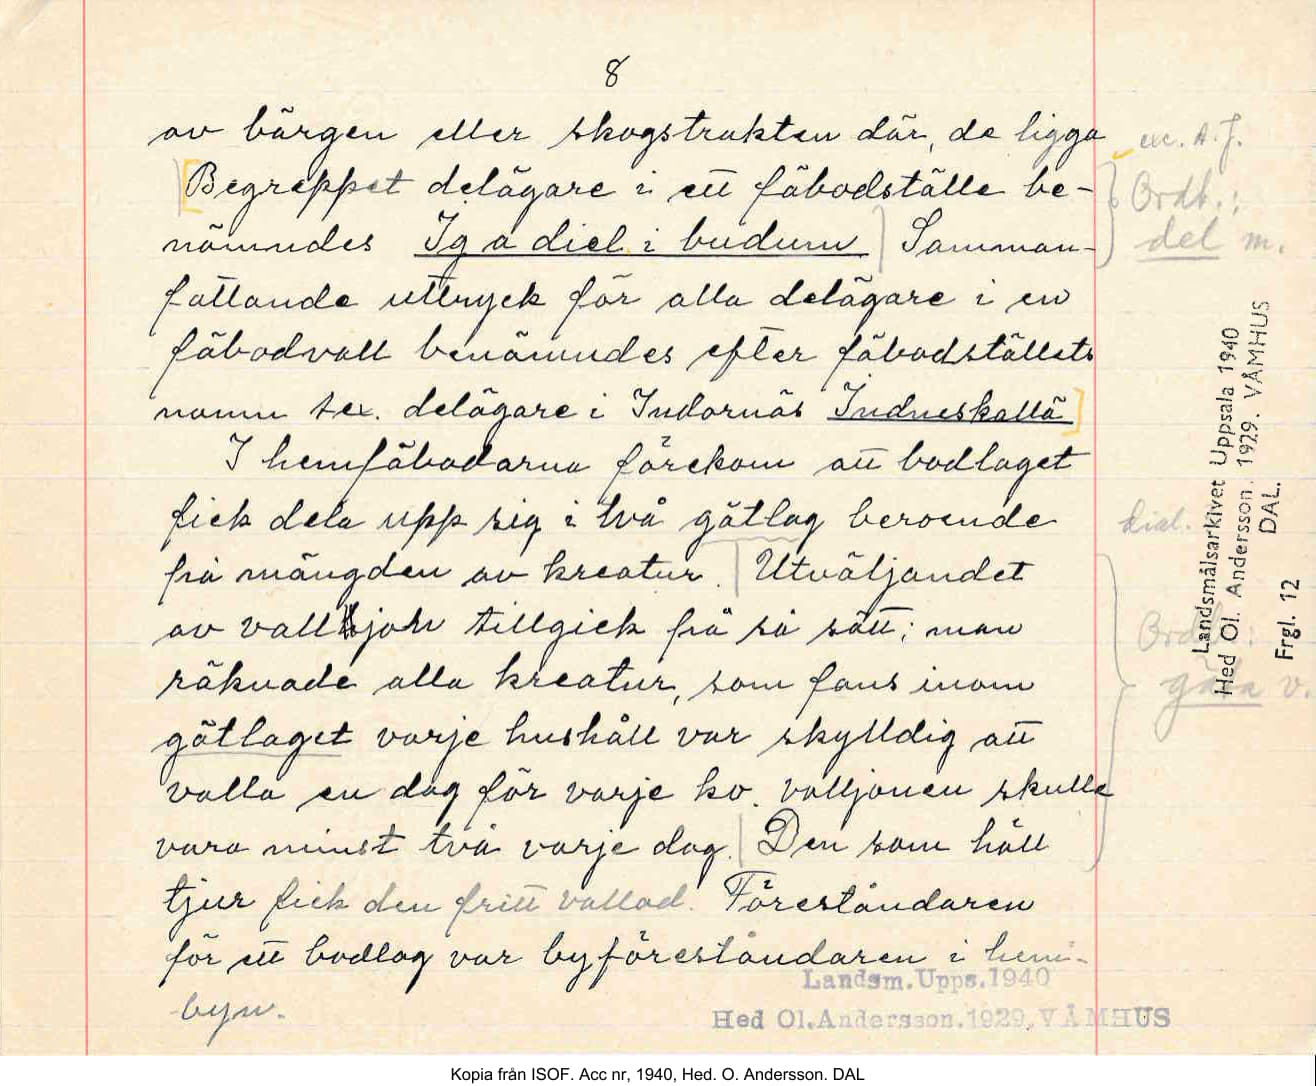 8
av bärgen eller skogstrakten där, de ligga
[Begreppet delägare i ett fäbodställe be-
nämndes Ig a diel i budum] Samman-
fattande uttryck för alla delägare i en
fäbodvall benämndes efter fäbodställets
namn t.ex. delägare i Indornäs Indneskallä]
I hemfäbodarna förekom att bodlaget
fick dela upp sig i två gätlag beroende
på mängden av kreatur. | Utväljandet
av valljon tillgick på så sätt; man
räknade alla kreatur, som fans inom
gätlaget varje hushåll var skylldig att
valla en dag för varje ko. valljonen skulle
vara minst två varje dag. | Den som håll
tjur fick den fritt vallad. Föreståndaren
för ett bodlag var byföreståndaren i hem-
byn.
exc. A. J.
Ordb.:
del m.
dial.
Ordb.:
gäta v.
Landsmålsarkivet Uppsala 1940
Hed Ol. Andersson. 1929. VÅMHUS
DAL.
Frgl. 12
Landsm.Upps.1940
Hed Ol.Andersson.1929.VÅMHUS
Kopia från ISOF. Acc nr, 1940, Hed. O. Andersson. DAL